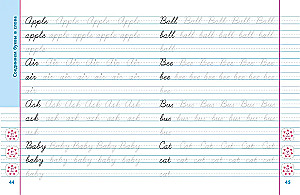 Соединяем буквы в слова
Apple Apple Apple Apple
apple apple apple apple apple
apple
Air Air Air Air Air Air
air air air air air air
air
Ask Ask Ask Ask Ask
ask ask ask ask ask
ask
Baby Baby Baby Baby Baby
baby baby baby baby baby
baby
44
Ball Ball Ball Ball Ball
ball ball ball ball ball
ball
Bee Bee Bee Bee Bee
bee bee bee bee bee bee
bee
Bus Bus Bus Bus Bus
bus bus bus bus bus
bus
Cat Cat Cat Cat Cat
cat cat cat cat cat
cat
45